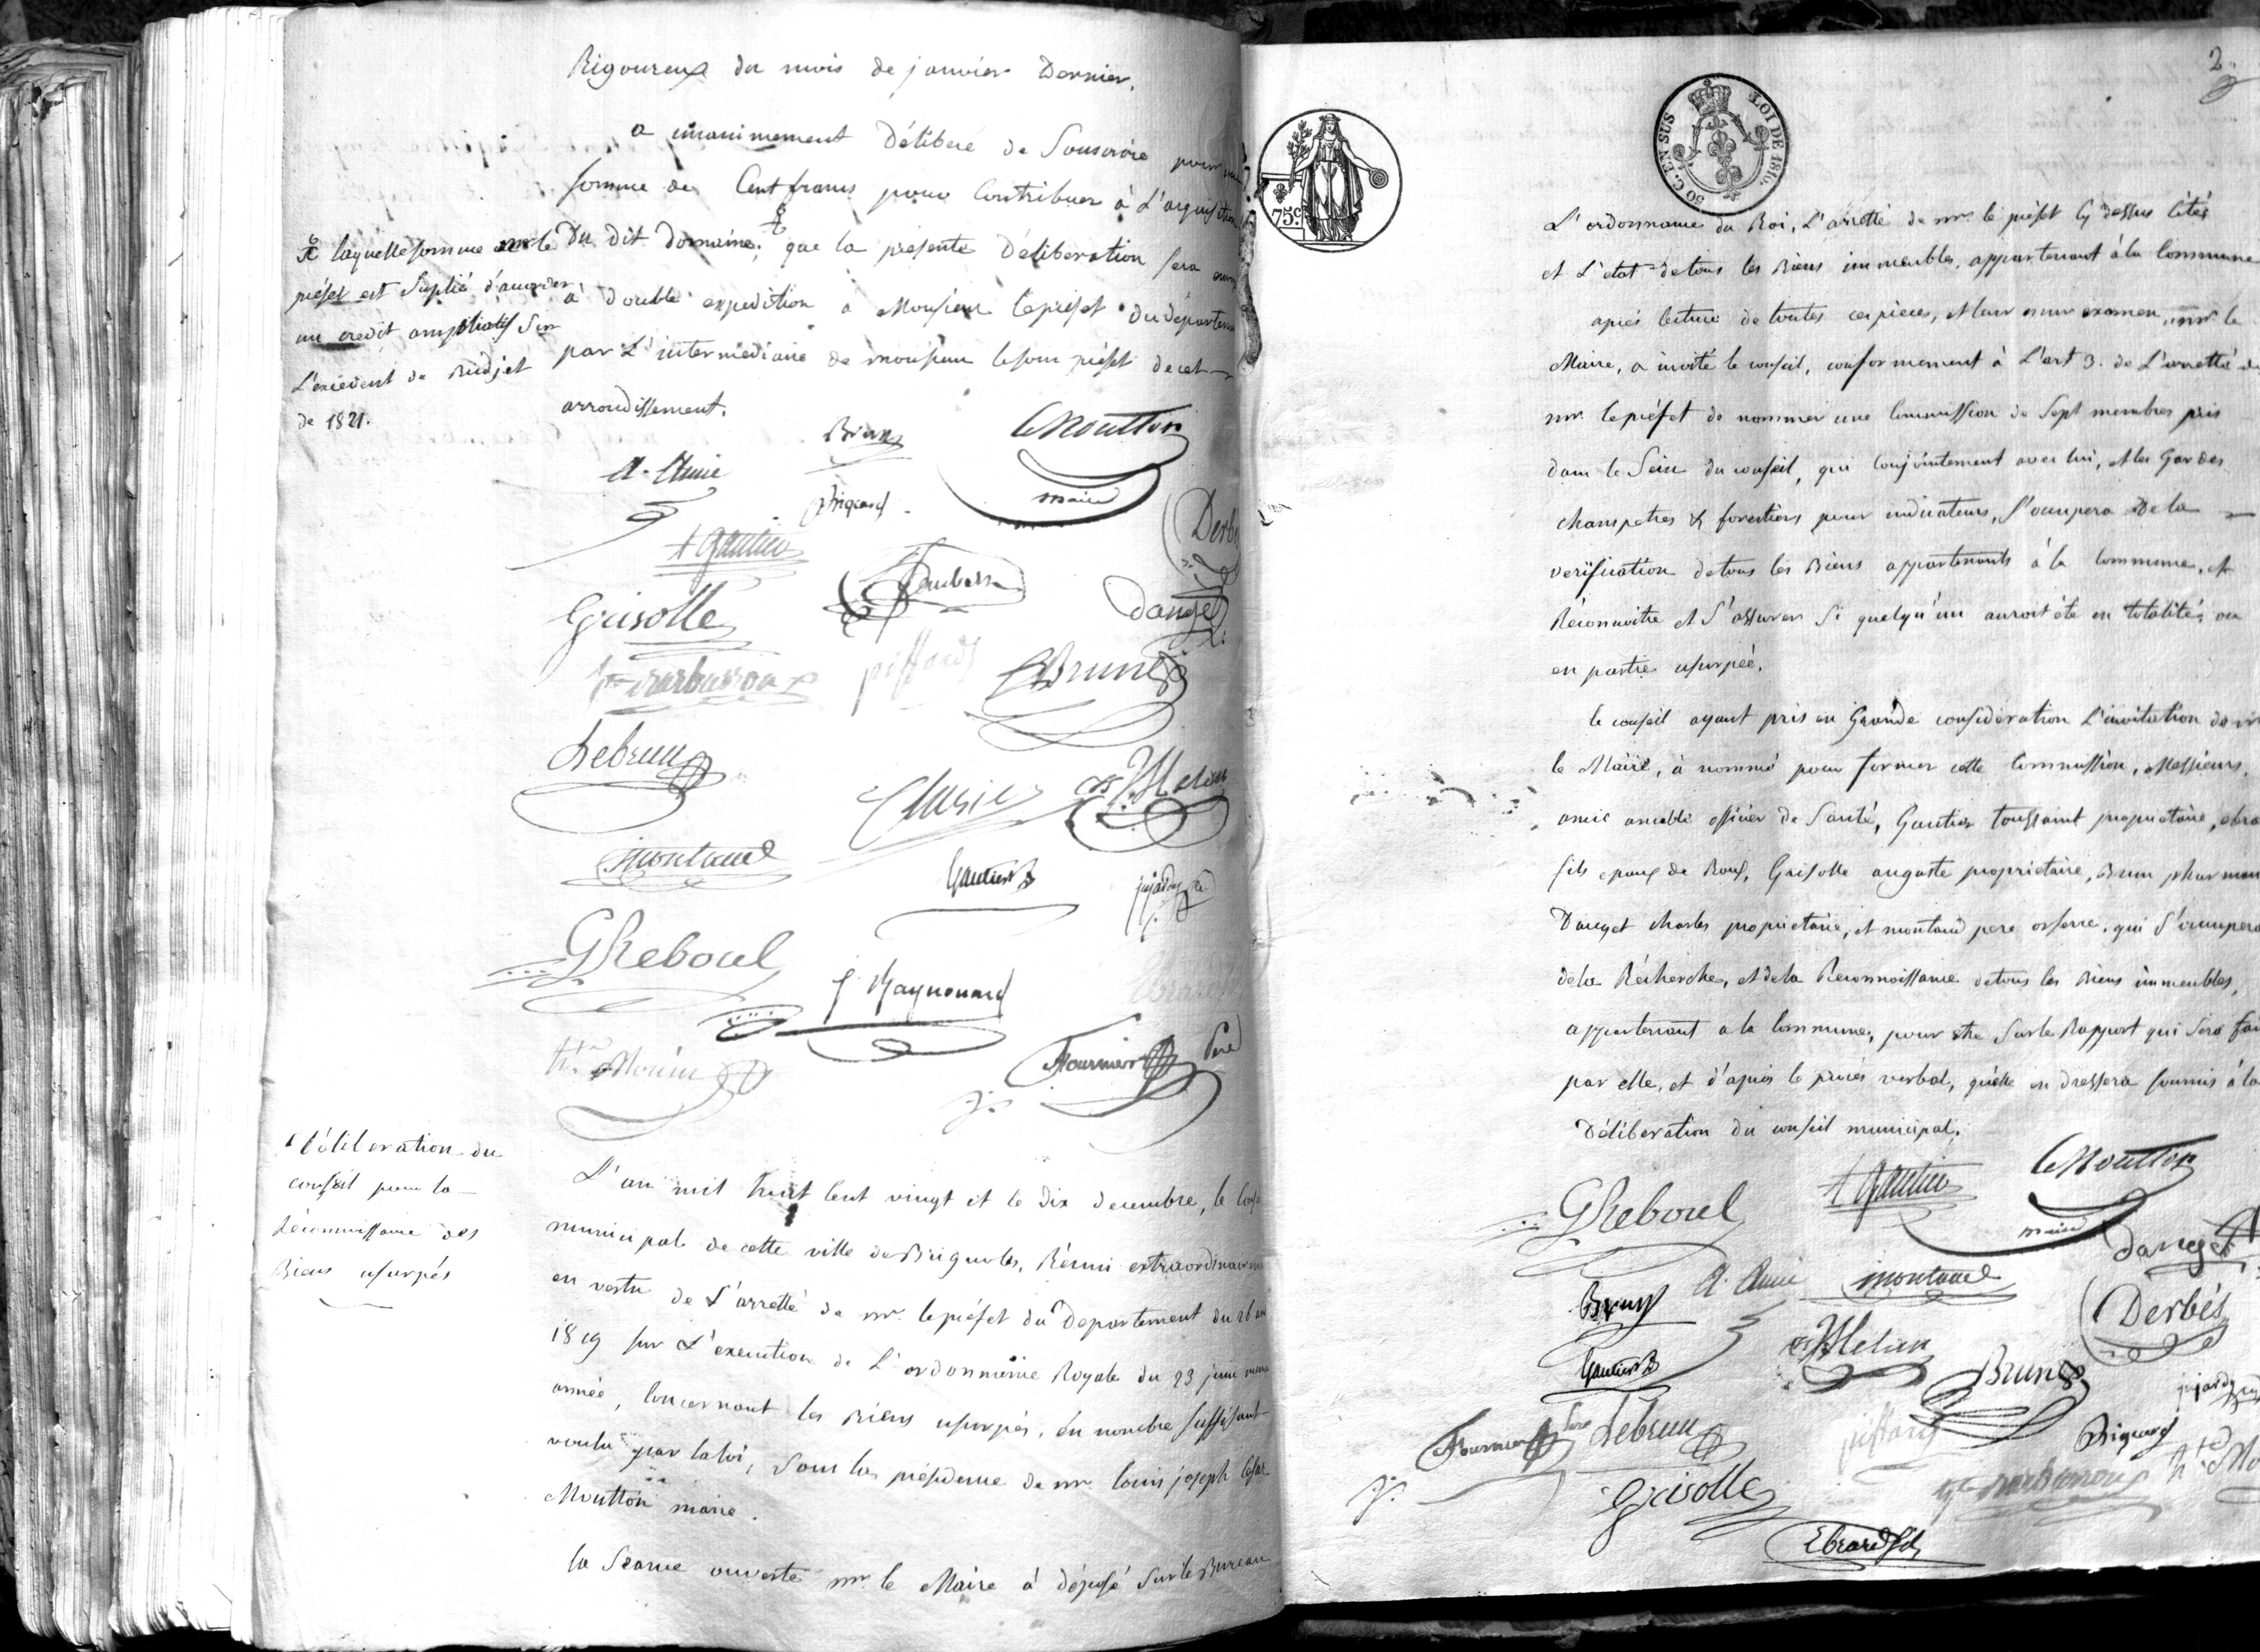 Rigoureux du mois de janvier Dernier.
a unanimement Délibéré de Souscrire pour une
somme de Cent francs pour Contribuer à L'acquisition
Du dit Domaine; que la présente Déliberation sera
à double expedition a Monsieur le préfet du département
par L'intermediaire de monsieur le sous préfet de cet
arrondissement.
laquelle somme mr le
préfet est Suplié d'accorder
un credit ampliatif Sur
L'excédent de Budjet
de 1821.
Brun
CMoutton
maire
A. Amic
Brignard
T Gautier
Derbés
Jaubert
Grisolle
Danget
h.te Barbarroux
piffard
Brun
Lebrun
Clusie
Melan
montaud
Gautier
jujardy
GReboul
J. Raynouard
h.te Morin
Fournier Pere
Déliberation du
conseil pour la
Réconnoissance des
Biens usurpés
L'an mil huit Cent vingt et le dix decembre, le Conseil
municipal de cette ville de Brignoles, Réuni extraordinairement
en vertu de L'arretté de mr. le préfet du Département du 26
1819 sur L'execution de L'ordonnance Royale du 23 juin même
année, Concernant les Biens usurpés, en nombre suffisant
voulu par la loi, sous la présidence de mr. louis joseph César
Moutton maire.
la Séance ouverte mr. le Maire à déposé sur le Bureau
2.
75c.
50 C. EN SUS
LOI DE 1816.
L'ordonnance du Roi, L'arretté de mr. le préfet Cy dessus Cités
et L'état de tous les Biens immeubles, appartenant à la Commune
aprés lecture de toutes ces pieces, et leur mur examen, mr. le
Maire, a invité le conseil, conformement à L'art 3. de L'arretté de
mr. le préfet de nommer une Commission de Sept membres pris
dans le Sein du conseil, qui Conjointement avec lui, et les Gardes
champetres & forestiers pour indicateurs, S'occupera De la
verification de tous les Biens appartenants à la Commune, et
Réconnoitre et S'assurer Si quelqu'un auroit été en totalité, ou
en partie usurpée.
le conseil ayant pris en Grande considération L'invitation de mr
le Maire, à nommé pour former cette Commission, Messieurs,
amic amable officier de Santé, Gautier toussaint propriétaire, ebrard
fils epoux de Roux, Grisolle auguste proprietaire, Brun pharmacien
Danget charles proprietaire, et montaud pere orfevre, qui S'occupera
de la Récherche, et de la Reconnoissance de tous les Biens immeubles,
appartenant a la Commune, pour être Sur le Rapport qui Sera fait
par elle, et d'aprés le procés verbal, qu'elle en dressera soumis à la
Déliberation du conseil municipal.
GReboul
T Gautier
CMoutton
maire
Danget
Brun
A. Amic
montaud
Derbés
Gautier
Melan
Brun
jujardy
Fournier Pere
Lebrun
piffard
Brignard
Grisolle
h.te Barbarroux
h.te Mo
Ebrard fils